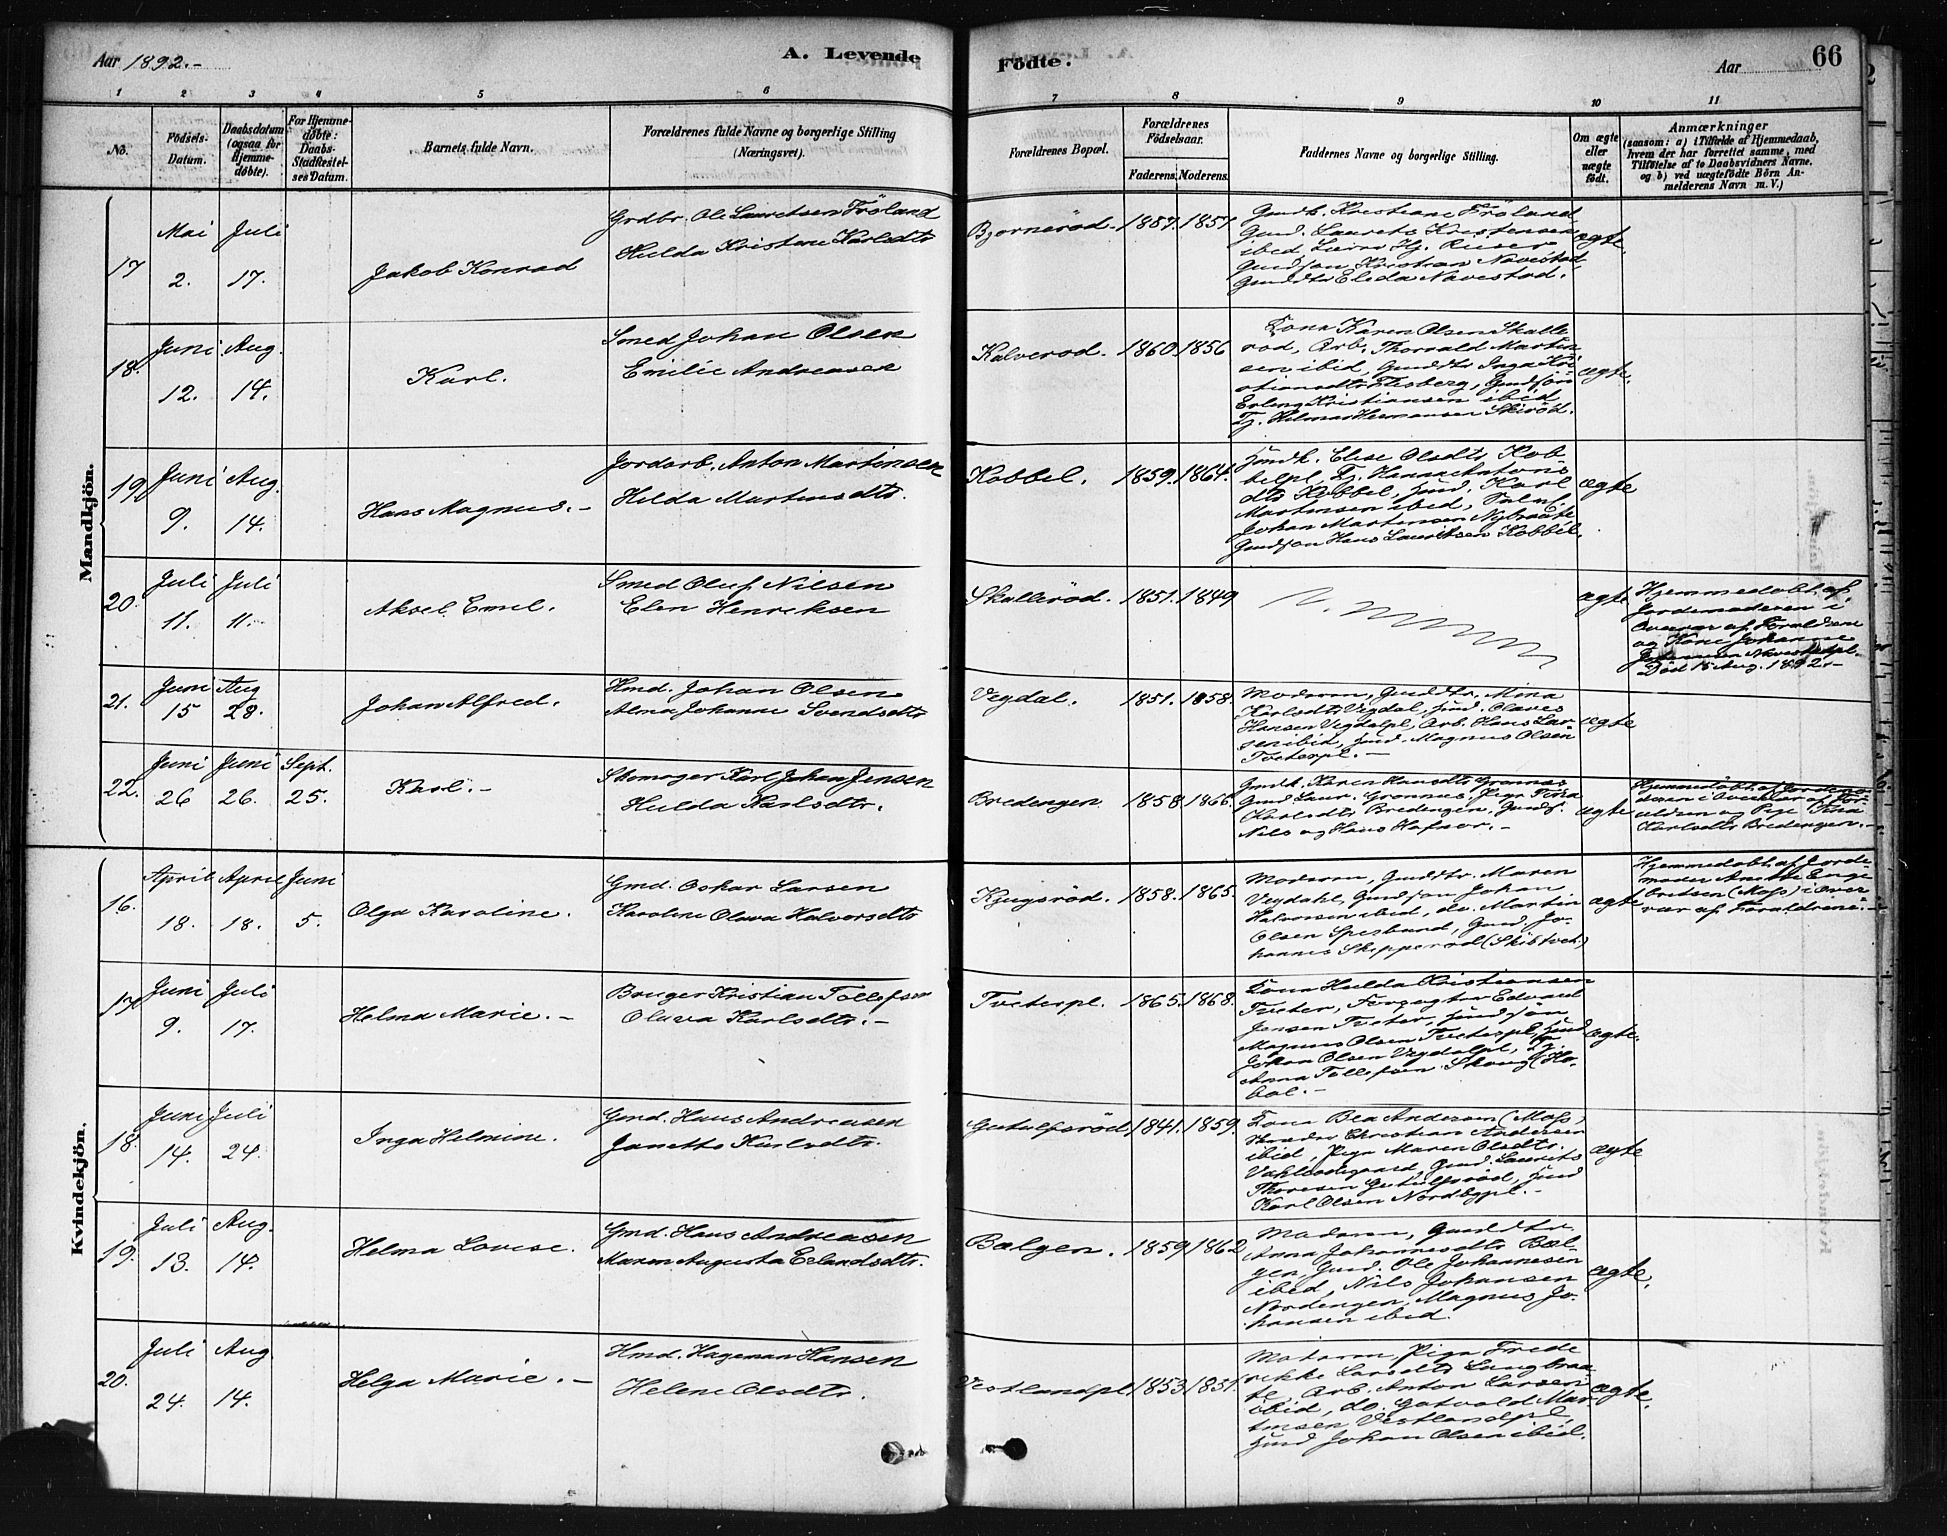 Aar 1892.-
A. Levende
Födte.
Aar
66
1 2 3 4 5 6 7 8 9 10 11
No.
Födsels-
Datum.
Daabsdatum
(ogsaa for
Hjemme-
døbte).
For Hjemme-
døbte:
Daabs-
Stadfæstel-
ses Datum.
Barnets fulde Navn.
Forældrenes fulde Navne og borgerlige Stilling
(Næringsvei).
Forældrenes Bopæl.
Forældrenes
Födselsaar.
Faderens. Moderens.
Faddernes Navne og borgerlige Stilling.
Om ægte
eller
uægte
født.
Anmærkninger
(saasom: a) i Tilfælde af Hjemmedaab,
hvem der har forrettet samme, med
Tilføielse af to Daabsvidners Navne,
og b) ved uægtefødte Börn An-
melderens Navn m. V.)
Mandkjön.
17
Mai
2.
Juli
17.
Jakob Konrad
Grdbr. Ole Lauritsen Fröland
Hulda Kristine Karlsdtr
Bjornerød. 1857. 1857
Gaardb. Kristiane Fröland,
Gmd. Laurits Kristensen
ibid
Gaardson Kristian Navestad,
Gaarddtr Elida Navestad.
ægte.
18.
Juni
12.
Aug.
14.
Karl.
Smed Johan Olsen
Emilie Andreasen
Kalverod. 1860. 1856
Kona Karen Olsen Skalle
rod, Arb. Thorvald Martin
sen ibid, Gaarddtr Inga Kri
stiansdtr Flesberg, Gaardsön
Erling Kristiansen ibid
Tj. Hilmar Hermansen Skiröd.
ægte.
19.
Juni
9.
Aug.
14.
Hans Magnus. -
Jordarb. Anton Martinsen
Hilda Martinsdtr.
Kobbel. 1859. 1864.
Husmk. Elise Olsdtr Kob-
belpl, Tj. Hanna Antons
dtr Kobbel, Husmd. Karl
Martinsen ibid,
Johan Martinsen Nybraate
Gaardson Hans Lauritsen Kobbel.
ægte
20.
Juli
11.
Juli
11.
Aksel Emil.
Smed Oluf Nilsen
Elen Henriksen
Skallerød. 1851. 1849
ægte
Hjemmedöbt af
Jordemoderen i
Overvær af Foraldrene
og Kone Johanne
Död 15 Aug. 1892. -
21.
Juni
15
Aug
28.
Johan Alfred.
Hmd. Johan Olsen
Alma Johanne Svendsdtr
Vegdal. 1851. 1858.
Moderen, Gaarddtr. Mina
Karlsdtr Vegdal, Husmd. Olaves
Hansen Vegdalpl, Arb. Hans Lar-
sen ibid, Husmd. Magnus Olsen
Tveterpl. -
ægte
22.
Juni
26
Juni
26.
Sept.
25.
Karl. -
Skomager Karl Johan Jensen
Hulda Karlsdtr.
Bredengen 1858. 1866.
Gmdk. Karen Hansdtr Grönnes
Gmd. Laur. Grönnes, Pige Tina
Karlsdtr Bredengen, Gaards.
Nils og Hans Hafsør. -
ægte
Hjemmedöbt af Jordemo-
deren i Overvær af For-
ældren og Pige Tina
Karlsdtr Bredengen. -
Kvindekjön.
16.
April
18.
April
18.
Juni
5.
Olga Karoline.
Gmd. Oskar Larsen
Karoline Olava Halvorsdtr
Kjugsröd. 1858. 1865.
Moderen, Gaarddtr. Maren
Vegdahl, Gaardson Johan
Halvorsen ibid, do. Martin
Olsen Spesbund, Gmd. Jo-
hannes Skipperöd (Skibtvet)
ægte
Hjemmedöbt af Jorde-
moder Anette Enge-
bretsen (Moss) i Over
vær af Foraldrene. -
17.
Juni
9.
Juli
17.
Helma Marie. -
Bruger Kristian Tollefsen
Olava Karlsdtr. -
Tveterpl. 1865. 1868.
Kona Hulda Kristiansen
Tveter, Forpagter Edvard
Jensen Tveter, Husmdson
Magnus Olsen Tveterpl, Husmd
Johan Olsen Vegdalpl, Tj.
Anna Tollefsen Skaug (Ho-
bøl. -
ægte.
18.
Juni
14.
Juli
24.
Inga Helmine.
Gmd. Hans Andreasen
Janette Karlsdtr.
Gutulfsröd 1841. 1859.
Kona Bea Andersen (Moss)
Christian Andersen
ibid, Pige Maren Olsdtr.
Gmd. Laurits
Thoresen Gutulfsröd, Husmd
Karl Olsen Nordbypl. -
ægte
19.
Juli
13.
Aug.
14.
Helma Lovise.
Gmd. Hans Andreasen
Maren Augusta Erlandsdtr.
Bælgen. 1859 1862
Moderen, Gaarddtr
Anna Johannesdtr Bæl-
gen, Gmd. Ole Johannesen
ibid, Nils Johansen
Nordengen, Magnus Jo-
hansen ibid.
ægte.
20.
Juli
24.
Aug
14.
Helga Marie. -
Hmd. Hageman Hansen
Helene Olsdtr.
Vestlandpl 1853 1851.
Moderen, Pige Frede
rikke Larsdtr Langbraa-
te, Arb. Anton Larsen
ibid, do. Gotvald Mar-
tinsen Vestlandpl,
Husmd Johan Olsen ibid.
ægte.